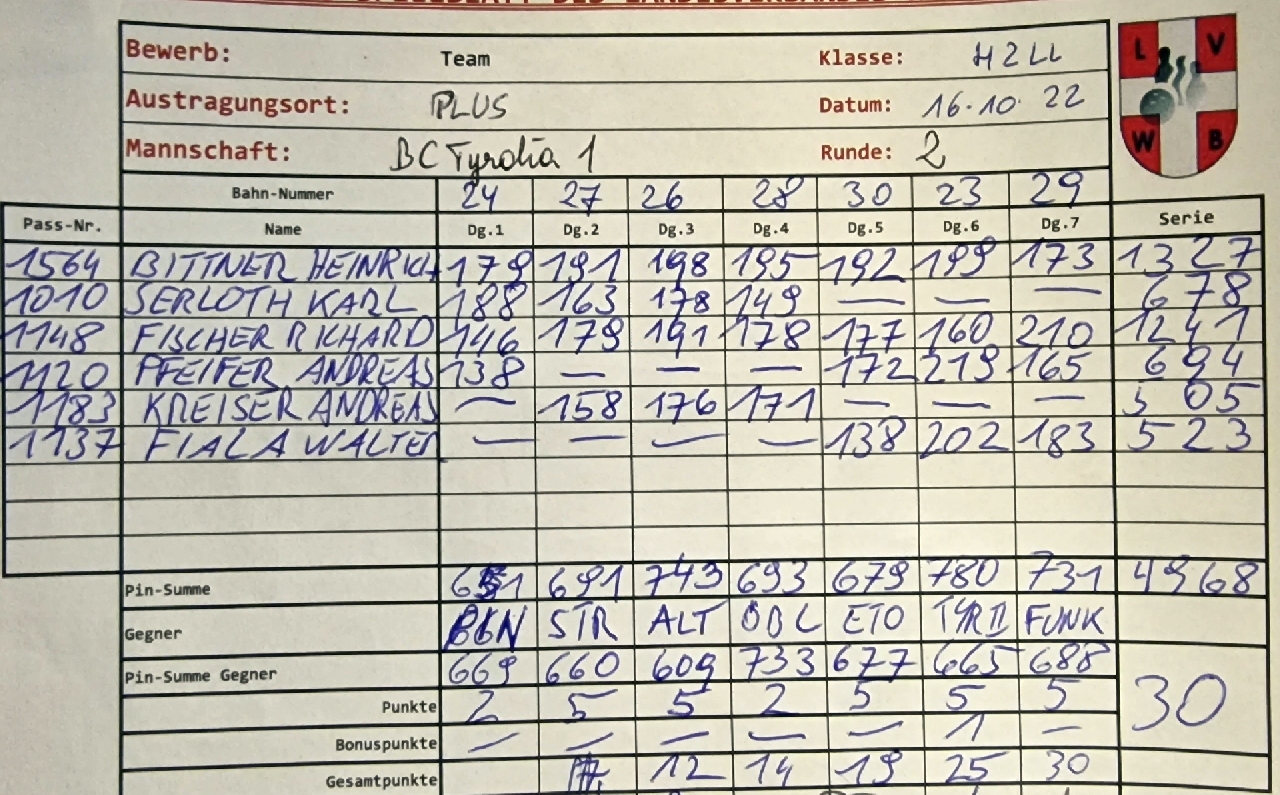 SPIELBLATT DES LANDESVERBANDES
Bewerb: Team Klasse: H2LL
Austragungsort: PLUS Datum: 16.10.22
Mannschaft: BC Tyrolia 1 Runde: 2
L V W B
Bahn-Nummer 24 27 26 28 30 23 29
Pass-Nr. Name Dg.1 Dg.2 Dg.3 Dg.4 Dg.5 Dg.6 Dg.7 Serie
1564 BITTNER HEINRICH 179 191 198 195 192 199 173 1327
1010 SERLOTH KARL 188 163 178 149 — — — 678
1148 FISCHER RICHARD 146 179 191 178 177 160 210 1241
1120 PFEIFER ANDREAS 138 — — — 172 219 165 694
1183 KREISER ANDREAS — 158 176 171 — — — 505
1137 FIALA WALTER — — — — 138 202 183 523
Pin-Summe 651 691 743 693 679 780 731 4968
Gegner BGN STR ALT ÖBL ETO TYR II FUNK
Pin-Summe Gegner 669 660 609 733 677 665 688
Punkte 2 5 5 2 5 5 5 30
Bonuspunkte — — — — — 1 —
Gesamtpunkte 7 12 14 19 25 30